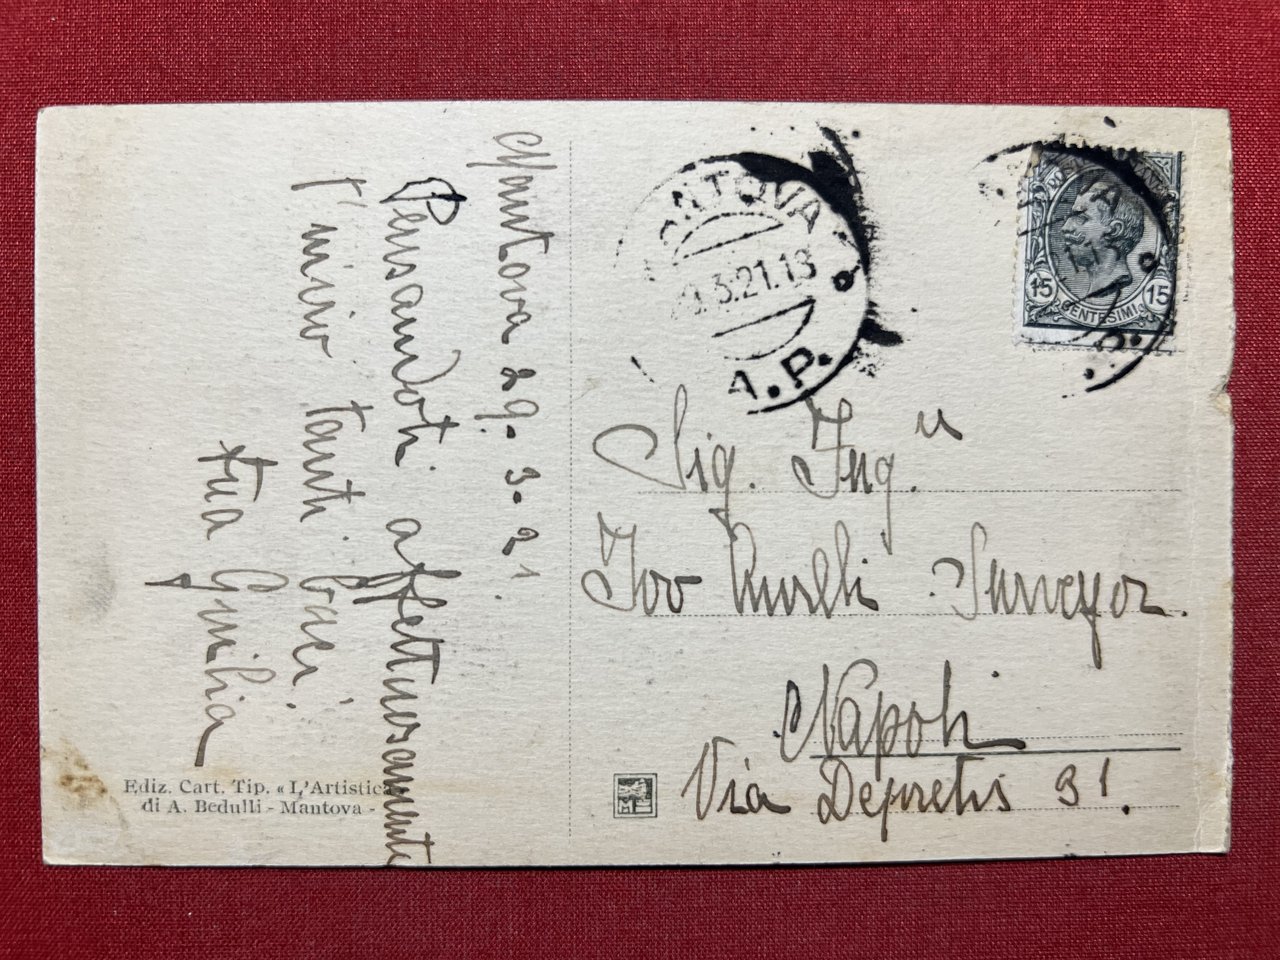 Mantova 29.3.21
Pensandoti affettuosamente
t'invio tanti baci
tua Giulia
Ediz. Cart. Tip. « L'Artistica »
di A. Bedulli - Mantova -
MANTOVA
29.3.21.18
A.P.
15 15
CENTESIMI
Sig. Ing.
Surveyor
Napoli
Via Depretis 31.